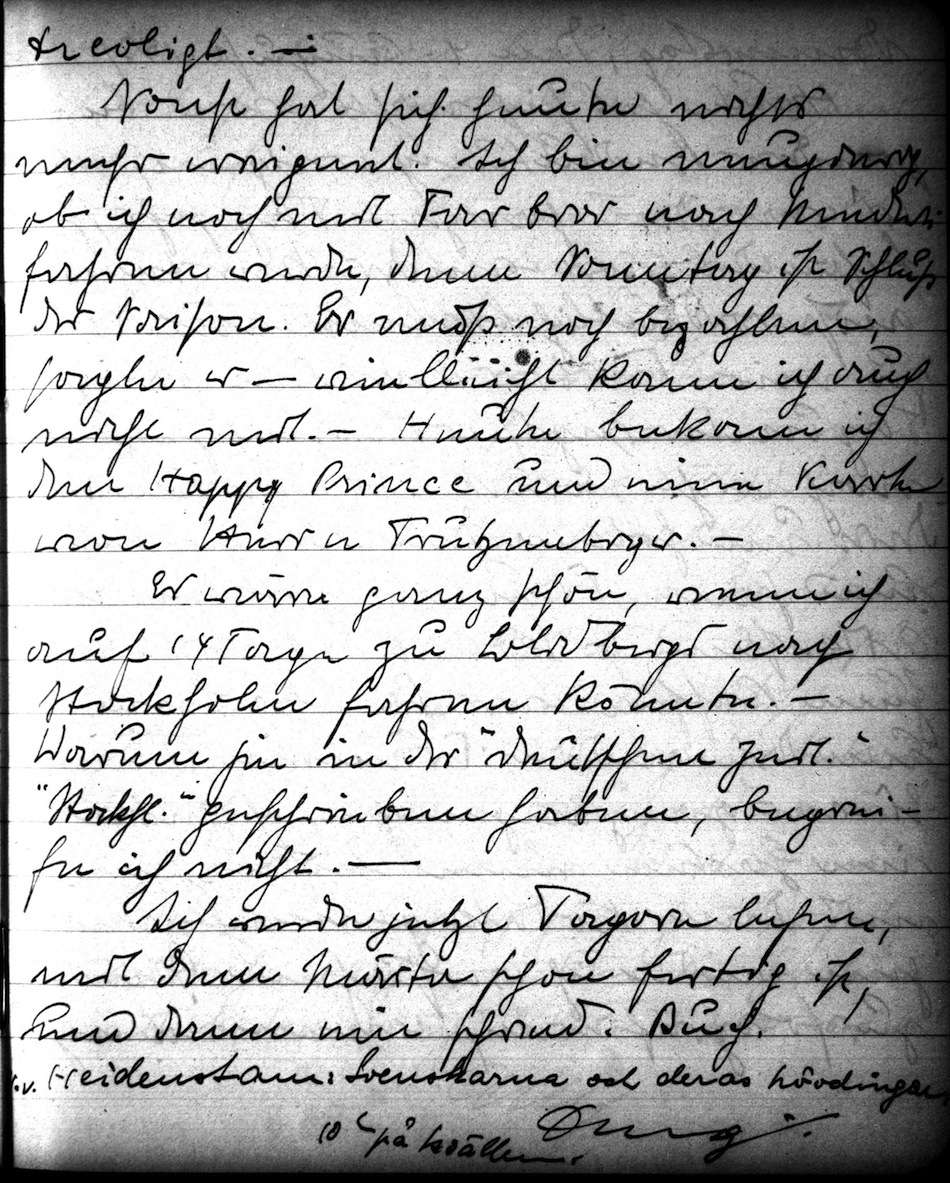 trevligt. —
Sonst hat sich heute nichts
mehr ereignet. Ich bin neugierig,
ob ich noch mit Farbror nach
fahren werde, denn Sonntag ist Schluß
der Saison. Er muß noch bezahlen,
sagte er — vielleicht kann ich auch
nicht mit. — Heute bekam ich
den Happy Prince und eine Karte
von Herrn
Es wäre ganz schön, wenn ich
auf 14 Tage zu Goldbergs nach
Stockholm fahren könnte. —
Warum sie in der "deutschen Zeit."
"Stockh." geschrieben haben, begrei-
fe ich nicht. —
Ich werde jetzt Tagore lesen,
mit dem Märta schon fertig ist,
und dann ein schwed. Buch.
v. Heidenstam: Svenskarna och deras hövdingar
10 på kvällen.